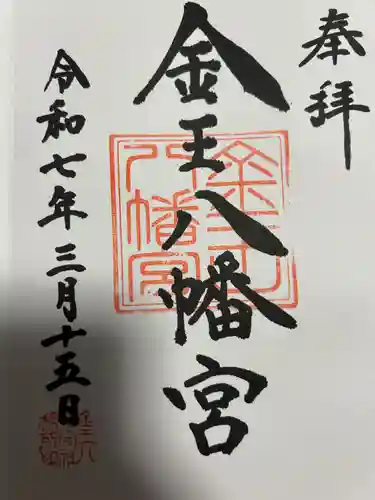 奉拝
金王八幡宮
令和七年三月十五日
金王八幡宮